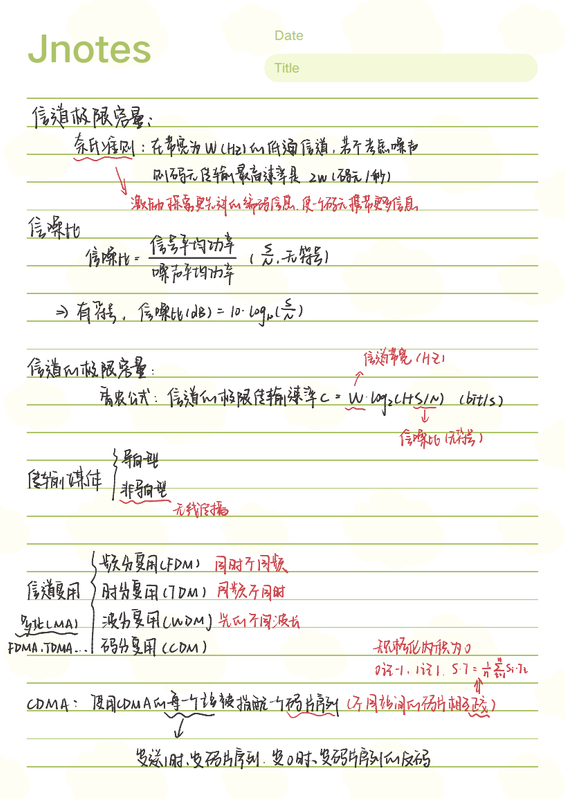 Jnotes
Date
Title
信道极限容量：
奈氏准则：在带宽为W(HZ)的低通信道，若不考虑噪声
则码元传输最高速率是 2W(码元/秒)
激励探索更先进的编码信息，使一个码元携带更多信息
信噪比
信噪比 = 信号平均功率
噪声平均功率
( S/N，无符号)
⇒ 有符号，信噪比(dB) = 10·log₁₀(S/N)
信道带宽(HZ)
信道的极限容量：
香农公式：信道的极限传输速率C = W·log₂(1+S/N) (bit/s)
信噪比(无符号)
传输媒体
导向型
非导向型
无线传播
频分复用(FDM) 同时不同频
信道复用
时分复用(TDM) 同频不同时
多址(MA)
波分复用(WDM) 光的不同波长
FDMA,TDMA...
码分复用(CDM)
规格化内积为0
0记-1，1记1. S·T = 1/n Σ Si·Ti
CDMA：使用CDMA的每一个站被指配一个码片序列 (不同站间的码片相互正交)
发送1时，发码片序列. 发0时，发码片序列的反码